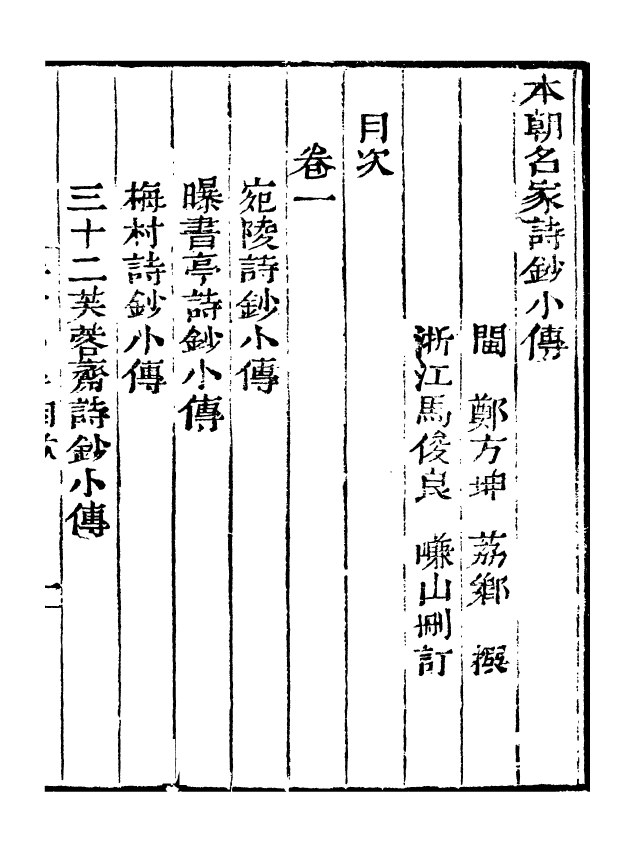 本朝名家詩鈔小傳
閩　鄭方坤　荔鄉　撰
浙江馬俊良　嵰山刪訂
目次
卷一
宛陵詩鈔小傳
曝書亭詩鈔小傳
梅村詩鈔小傳
三十二芙蓉齋詩鈔小傳